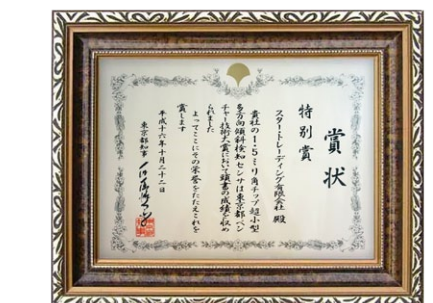 賞状
特別賞
スタートレーディング有限会社 殿
貴社の1.5ミリ角チップ超小型
多方向傾斜検知センサは東京都ベン
チャー技術大賞において頭書の成績を収め
られました
よってここにその栄誉をたたえこれを
賞します
平成十六年十月二十二日
東京都知事